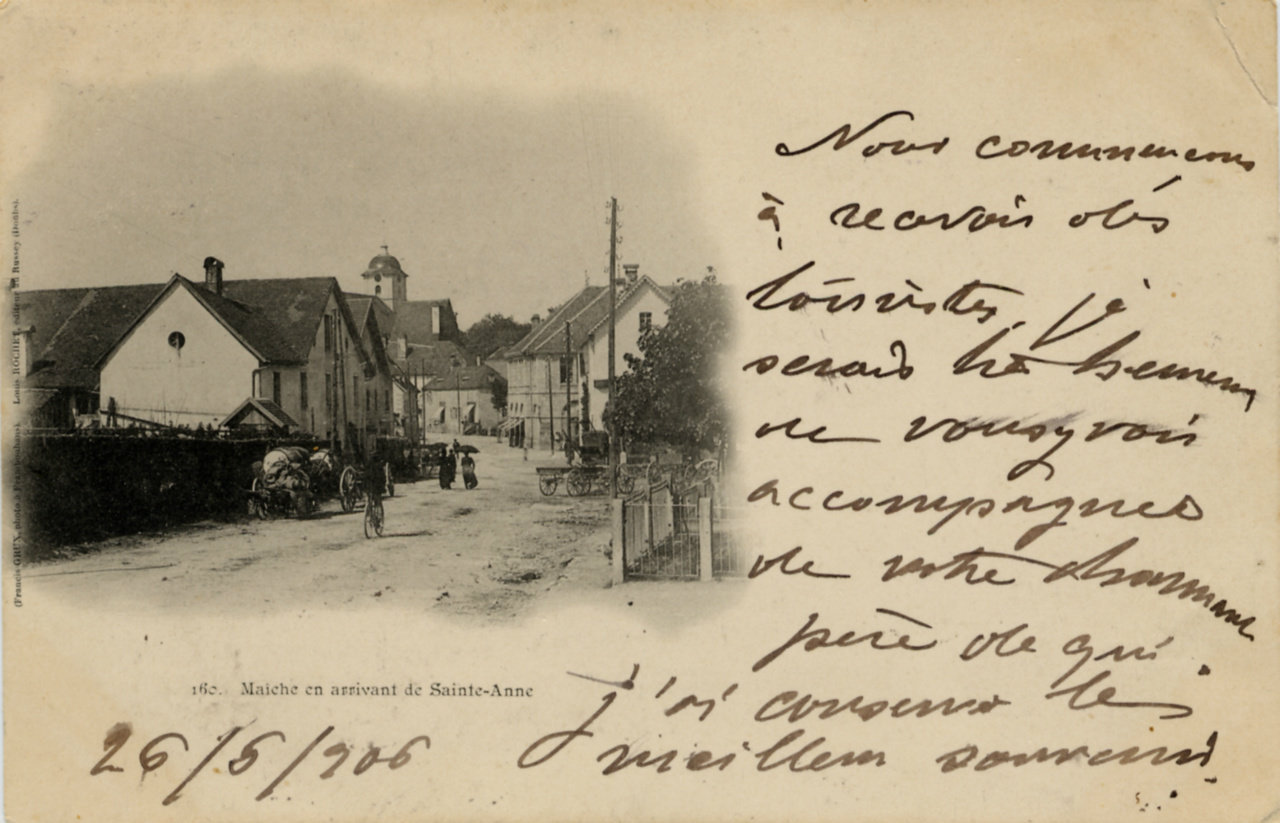 (Francis GRUX, photo à Damprichard). Louis ROCHET, éditeur au Russey (Doubs).
Nous commencons
à recevoir des
touristes, je
serais très heureux
de vous y voir
accompagnée
de votre charmant
père de qui
j'ai conservé le
meilleur souvenir
160. Maîche en arrivant de Sainte-Anne
26/6/906